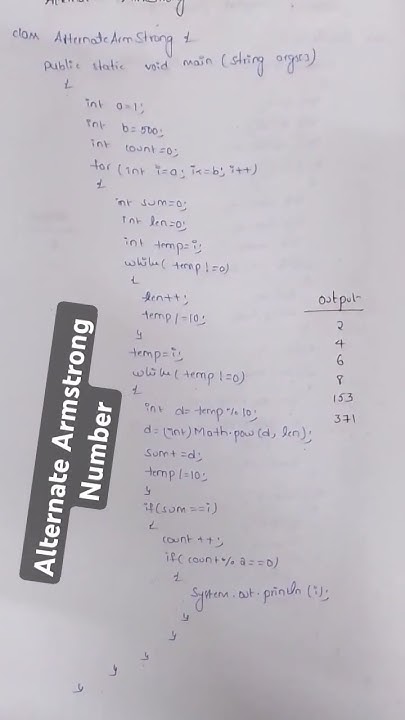 class AlternateArmStrong {
public static void main (String args[])
{
int a=1;
int b=500;
int count=0;
for (int i=a; i<=b; i++)
{
int sum=0;
int len=0;
int temp=i;
while( temp!=0)
{
len++;
temp/=10;
}
temp=i;
while( temp!=0)
{
int d=temp%10;
d=(int)Math.pow(d, len);
sum+=d;
temp/=10;
}
if(sum==i)
{
count++;
if( count%2==0)
{
System.out.println(i);
}
}
}
}
}
output
2
4
6
8
153
371
Alternate Armstrong
Number